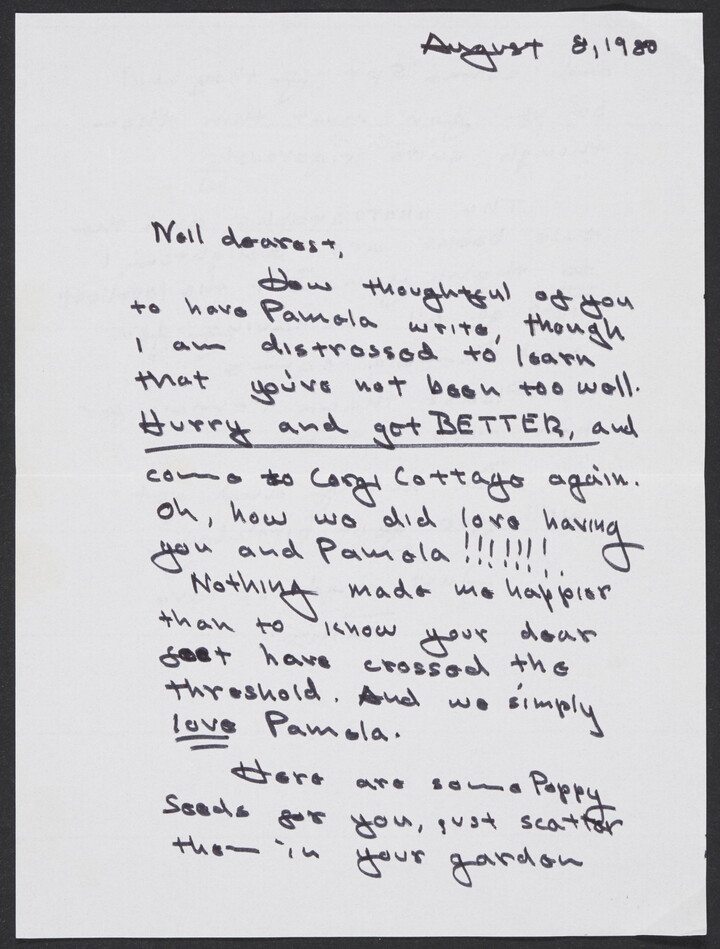 August 8, 1980
Nell dearest,
How thoughtful of you
to have Pamela write, though
I am distressed to learn
that you've not been too well.
Hurry and get BETTER, and
come to Corgi Cottage again.
Oh, how we did love having
you and Pamela !!!!!!!
Nothing made me happier
than to know your dear
feet have crossed the
threshold. And we simply
love Pamela.
Here are some Poppy
Seeds for you, just scatter
them in your garden